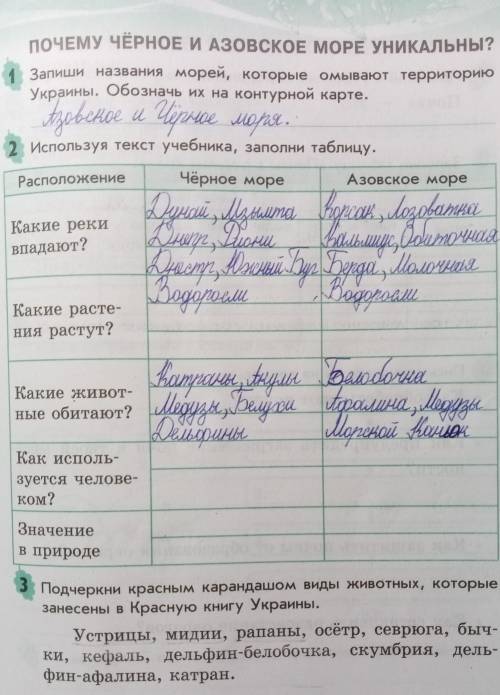 ПОЧЕМУ ЧЁРНОЕ И АЗОВСКОЕ МОРЕ УНИКАЛЬНЫ?
1 Запиши названия морей, которые омывают территорию
Украины. Обозначь их на контурной карте.
Азовское и Чёрное моря.
2 Используя текст учебника, заполни таблицу.
Расположение Чёрное море Азовское море
Какие реки впадают?
Дунай, Мзымта Корсак, Лозоватка
Днепр, Риони Кальмиус, Обиточная
Днестр, Южный Буг Берда, Молочная
Какие расте-
ния растут?
Водоросли Водоросли
Какие живот-
ные обитают?
Катраны, Акулы Белобочка
Медузы, Белухи Афалина, Медузы
Дельфины Морской Конёк
Как исполь-
зуется челове-
ком?
Значение
в природе
3 Подчеркни красным карандашом виды животных, которые
занесены в Красную книгу Украины.
Устрицы, мидии, рапаны, осётр, севрюга, быч-
ки, кефаль, дельфин-белобочка, скумбрия, дель-
фин-афалина, катран.